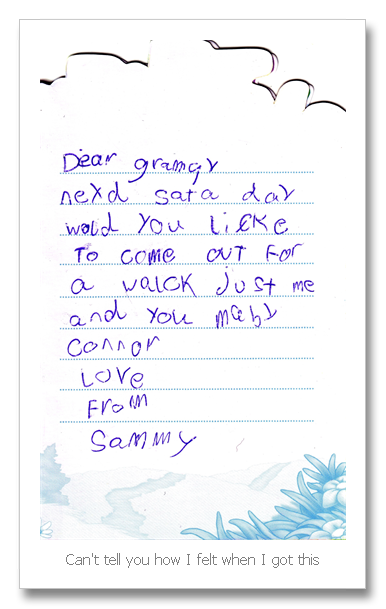 Dear gramay
nexd sata day
wold you licke
To come out For
a walck just me
and you maby
Connor
Love
From
Sammy
Can't tell you how I felt when I got this